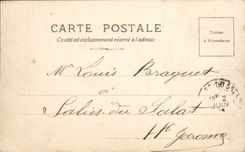 CARTE POSTALE
Ce côté est exclusivement réservé à l'adresse
Timbre
à
Mr Louis Braquet
à
Salies du Salat
Hte Garonne
JUIN